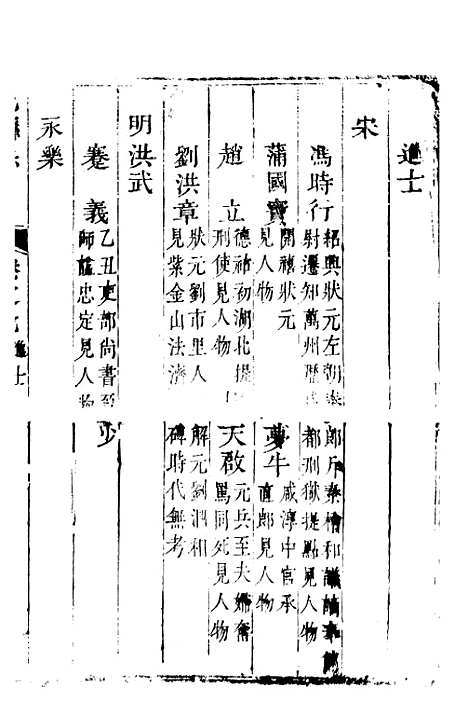 進士
宋
馮時行 紹興狀元左朝奉郎斥秦檜和議謫
尉遷知萬州 都刑獄提點見人物
蒲國寶 開禧狀元
見人物
夢牛 咸淳中官承
直郎見人物
趙立 德祐初湖北提
刑使見人物
天啟 元兵至夫婦奮
罵同死見人物
劉洪章 狀元劉市里人
見紫金山法濟
解元劉泗和
碑時代無考
明洪武
蹇義 乙丑吏部尚書至少
師諡忠定見人物
永樂
進士